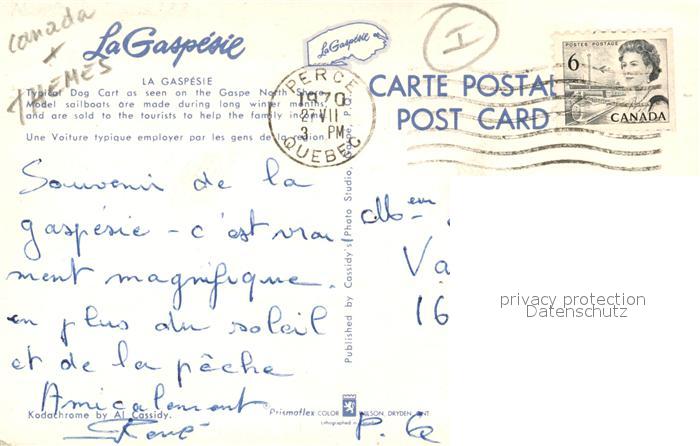 Canada
+
THEMES
La Gaspésie
La Gaspésie
I
LA GASPÉSIE
Typical Dog Cart as seen on the Gaspe North Shore.
Model sailboats are made during long winter months,
and are sold to the tourists to help the family income.
Une Voiture typique employer par les gens de la région.
PERCE
1970
27 VII
3 PM
QUEBEC
CARTE POSTAL
POST CARD
POSTES POSTAGE
6
CANADA
Souvenir de la
gaspésie - c'est vrai
ment magnifique.
en plus du soleil
et de la pêche
Amicalement
René
Published by Cassidy's Photo Studio, Gaspe, P.Q.
Va
16
P. Q
privacy protection
Datenschutz
Kodachrome by Al Cassidy.
Prismaflex COLOR WILSON, DRYDEN, ONT
Lithographed in